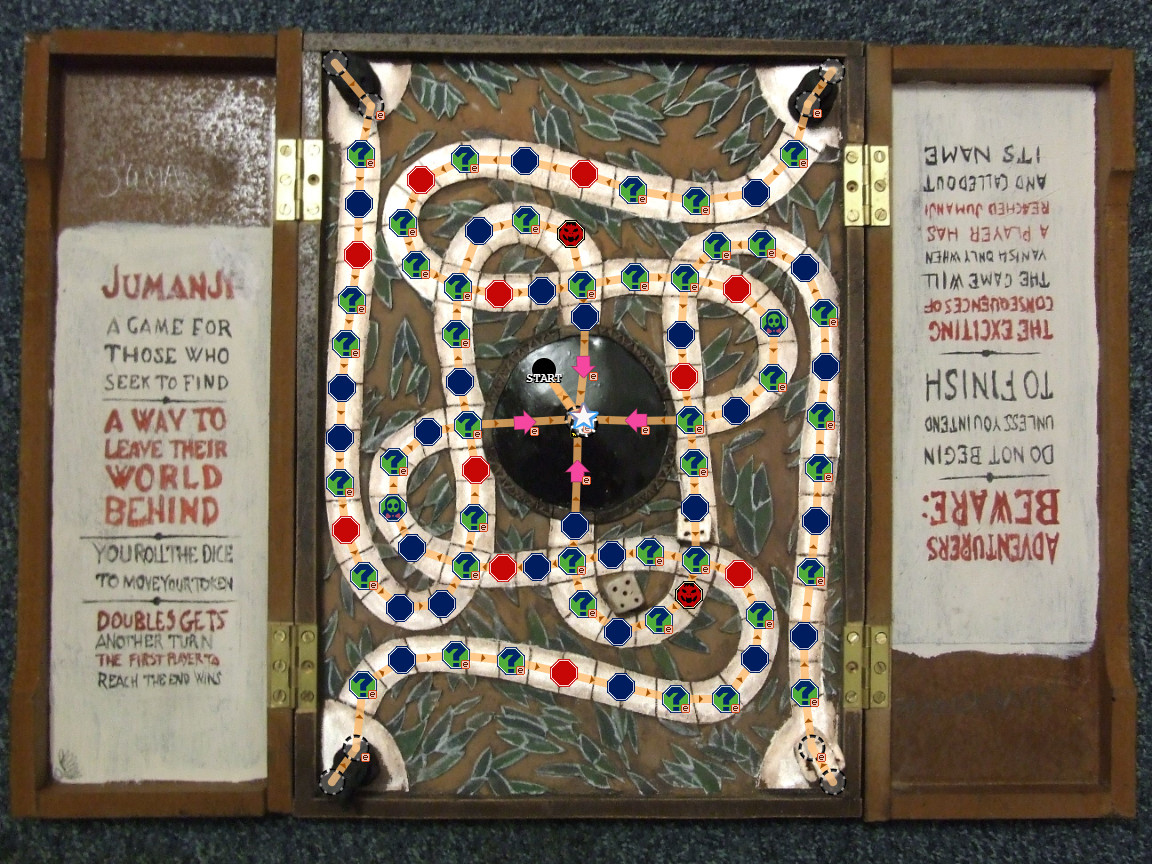 JUMANJI
A GAME FOR
THOSE WHO
SEEK TO FIND
A WAY TO
LEAVE THEIR
WORLD
BEHIND
YOU ROLL THE DICE
TO MOVE YOUR TOKEN
DOUBLES GETS
ANOTHER TURN
THE FIRST PLAYER TO
REACH THE END WINS
START
ADVENTURERS
BEWARE:
DO NOT BEGIN
UNLESS YOU INTEND
TO FINISH
THE EXCITING
CONSEQUENCES OF
THE GAME WILL
VANISH ONLY WHEN
A PLAYER HAS
REACHED JUMANJI
AND CALLED OUT
IT'S NAME